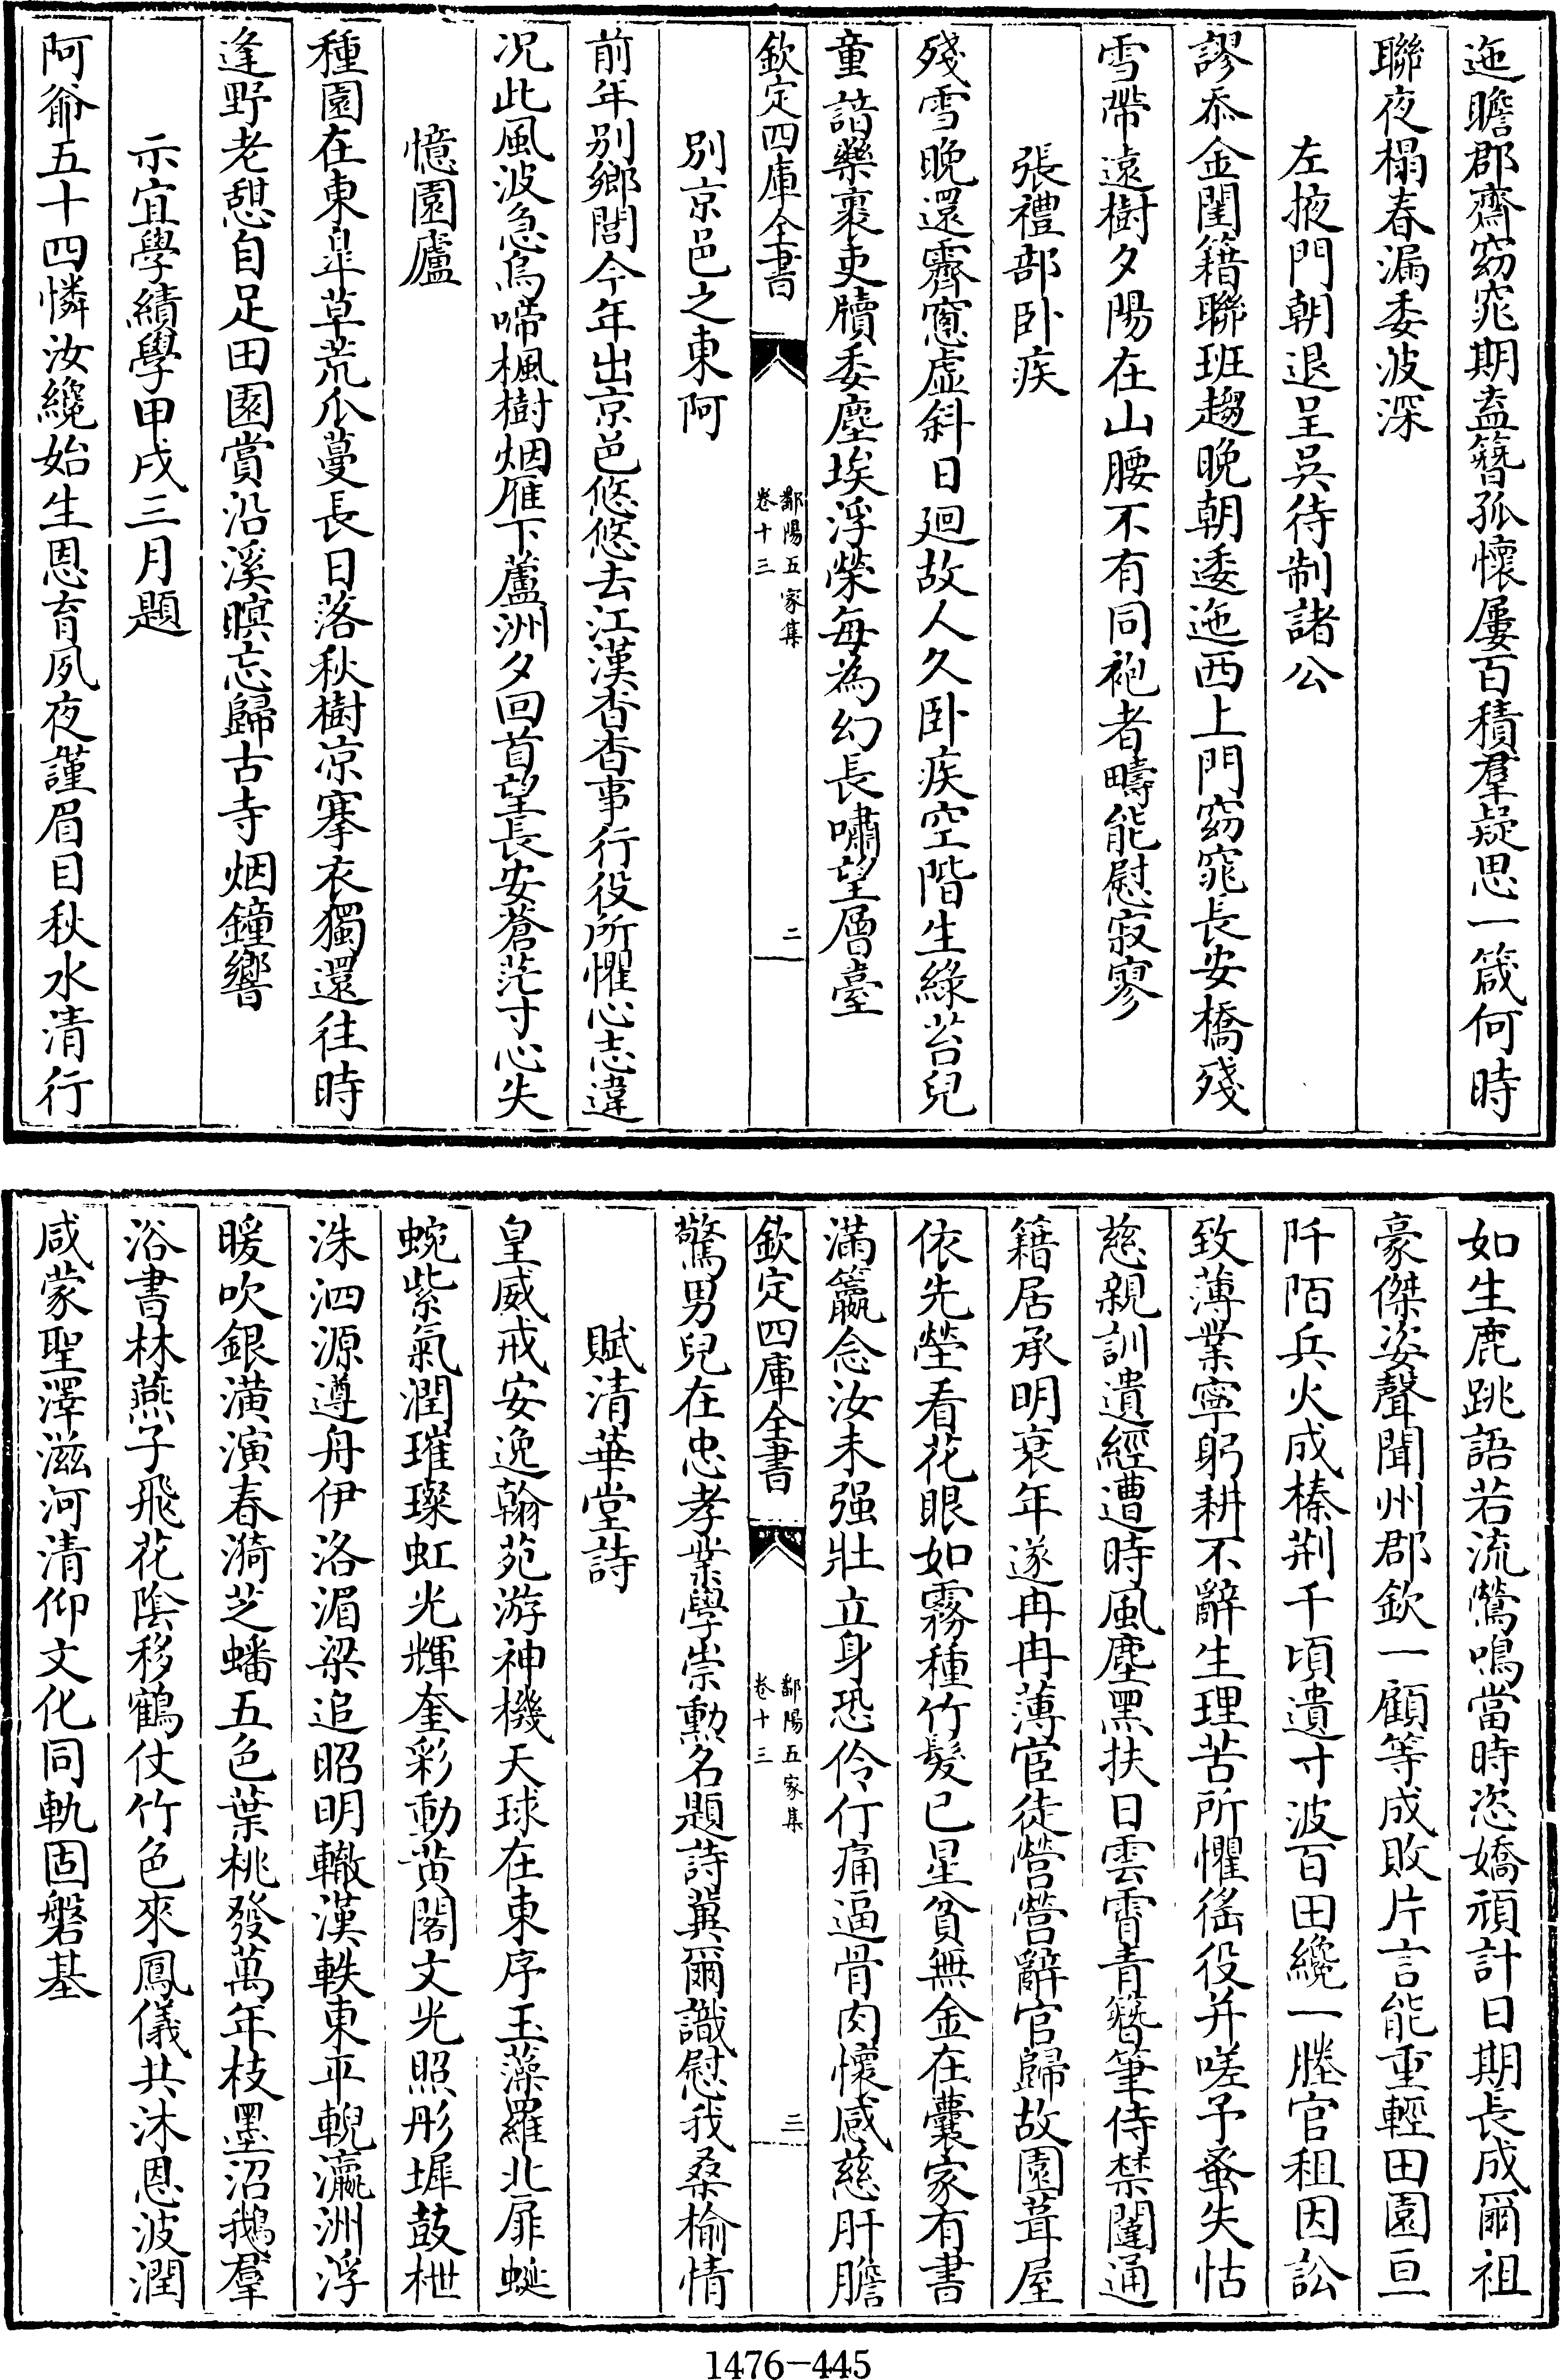 迤瞻郡齋窈窕期盍簪孤懷屢百積羣疑思一箴何時
聯夜榻春漏委波深
左掖門朝退呈吳待制諸公
謬忝金閨籍聯班趨晚朝逶迤西上門窈窕長安橋殘
雪帶遠樹夕陽在山腰不有同袍者疇能慰寂寥
張禮部卧疾
殘雪晚還霽窻虛斜日廻故人久卧疾空階生綠苔兒
童諳藥裹吏牘委塵埃浮榮每為幻長嘯望層臺
欽定四庫全書
鄱陽五家集
卷十三
二
別京邑之東阿
前年別鄉閭今年出京邑悠悠去江漢杳杳事行役所懼心志違
况此風波急烏啼楓樹烟雁下蘆洲夕回首望長安蒼茫寸心失
憶園廬
種園在東臯草荒瓜蔓長日落秋樹凉搴衣獨還往時
逢野老憩自足田園賞沿溪暝忘歸古寺烟鐘響
示宜學績學甲戌三月題
阿爺五十四憐汝纔始生恩育夙夜謹眉目秋水清行
如生鹿跳語若流鶯鳴當時恣嬌頑計日期長成爾祖
豪傑姿聲聞州郡欽一顧等成敗片言能重輕田園亘
阡陌兵火成榛荆千頃遺寸波百田纔一塍官租因訟
致薄業寧躬耕不辭生理苦所懼徭役并嗟予蚤失怙
慈親訓遺經遭時風塵黑扶日雲霄青簪筆侍禁闥通
籍居承明衰年遂冉冉薄宦徒營營辭官歸故園葺屋
依先塋看花眼如霧種竹髮已星貧無金在囊家有書
滿籯念汝未强壯立身恐伶仃痛逼骨肉懷感慈肝膽
欽定四庫全書
鄱陽五家集
卷十三
三
驚男兒在忠孝業學崇勳名題詩冀爾識慰我桑榆情
賦清華堂詩
皇威戒安逸翰苑游神機天球在東序玉藻羅北扉蜒
蜿紫氣潤璀璨虹光輝奎彩動黄閣文光照彤墀鼓枻
洙泗源遵舟伊洛湄梁追昭明轍漢軼東平輗瀛洲浮
暖吹銀潢演春漪芝蟠五色葉桃發萬年枝墨沼鵝羣
浴書林燕子飛花陰移鶴仗竹色來鳳儀共沐恩波潤
咸蒙聖澤滋河清仰文化同軌固磐基
1476-445